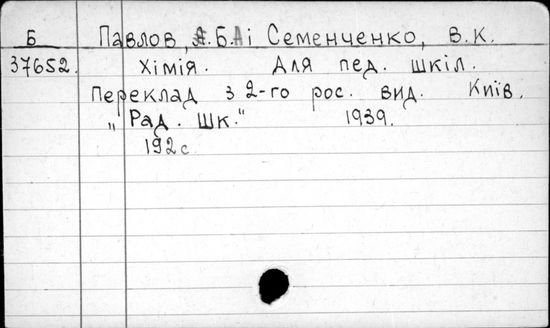 Б Павлов, Б.А. і Семенченко, В.К.
37652. Хімія. Для пед. шкіл.
Переклад з 2-го рос. вид. Київ.
„Рад. шк." 1939.
192 с